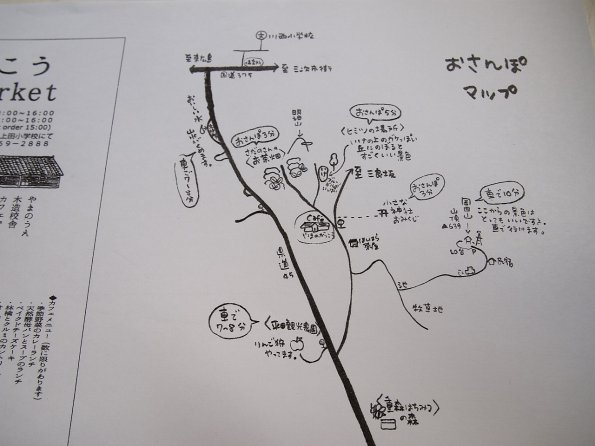 こう
rket
:00~16:00
:00~16:00
order 15:00)
上田小学校にて
59-2888
やまのうえ
木造校舎
カフェ
◆カフェメニュー(数に限りがあります)
・季節野菜のカレーランチ
・天然酵母パンとスープのランチ
・ベイクドチーズケーキ
おさんぽ
マップ
川西小学校
至東広島
国道375
至三次市街
おいしい水
出ています。
おさんぽ3分
さだのさんの
お茶畑
明神山
おさんぽ5分
〈ヒミツの場所〉
丘にのぼると
すごくいい景色
至三良坂
おさんぽ
3分
小さな
神社
おみくじ
Cafe
車で10分
岡田山
山頂
ここからの景色は
とてもいいですよ。
車で行けます。
民宿
池
牧草地
県道
45
車で
7~8分
〈平田観光農園〉
りんご狩
やってます。
重森はちみつ
の森